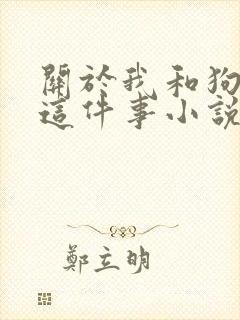 關於我和狗
這件事小說
鄭立明